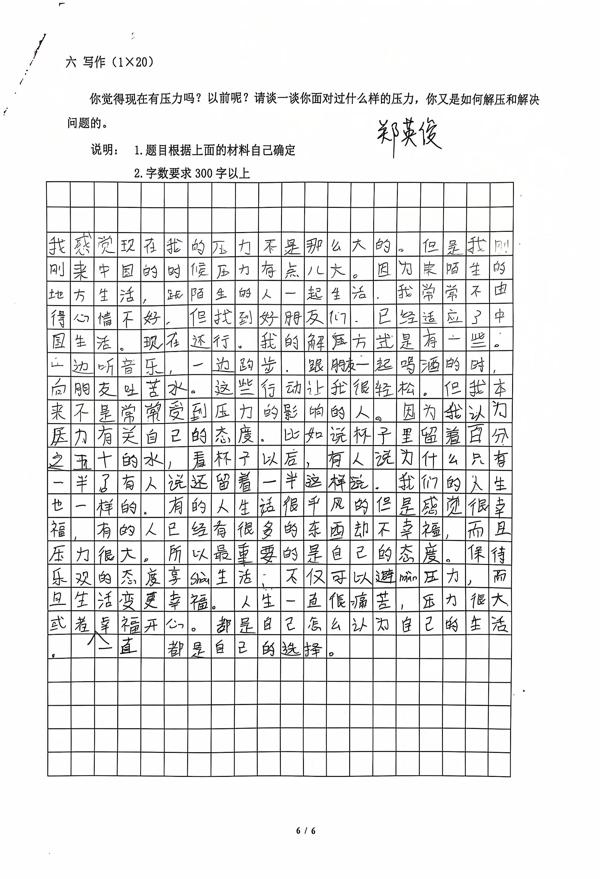 六 写作（1×20）
你觉得现在有压力吗？以前呢？请谈一谈你面对过什么样的压力，你又是如何解压和解决
问题的。
郑英俊
说明： 1.题目根据上面的材料自己确定
2.字数要求 300 字以上
我感觉现在我的压力不是那么大的。但是我刚
刚来中国的时候压力有点儿大。因为来陌生的
地方生活，跟陌生的人一起生活．我常常不由
得心情不好，但找到好朋友们．已经适应了中
国生活。现在还行。我的解压方式是有一些。
一边听音乐，一边跑步．跟朋友一起喝酒的时，
向朋友吐苦水。这些行动让我很轻松。但我本
来不是常常受到压力的影响的人。因为我认为
压力有关自己的态度．比如说杯子里留着百分
之五十的水，看杯子以后，有人说为什么只有
一半了有人说还留着一半这样说．我们的人生
也一样的．有的人生活很平风的但是感觉很幸
福，有的人已经有很多的东西却不幸福，而且
压力很大。所以最重要的是自己的态度。保待
乐观的态度享生活；不仅可以避压力，而
且生活变更幸福。人生一直很痛苦，压力很大
或者幸福开心。都是自己怎么认为自己的生活
．一直 都是自己的选择。
6 / 6